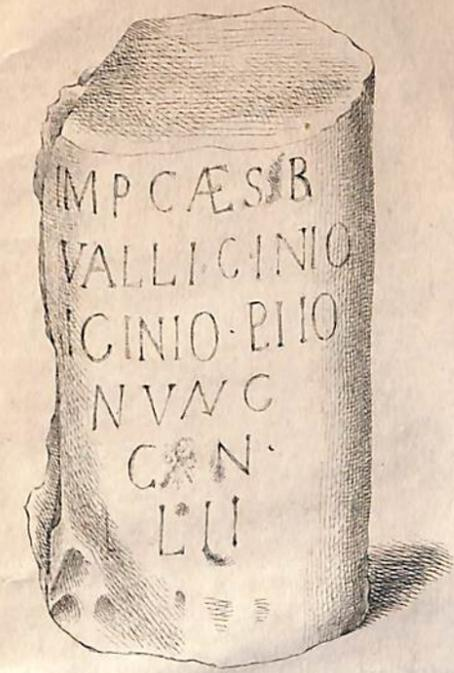 IMP CÆS B
VALLI·C·INIO
ICINIO·PIIO
NVNC
C N·
L·U